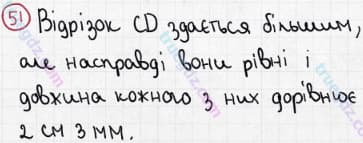 51 Відрізок CD здається більшим,
але насправді вони рівні і
довжина кожного з них дорівнює
2 см 3 мм.